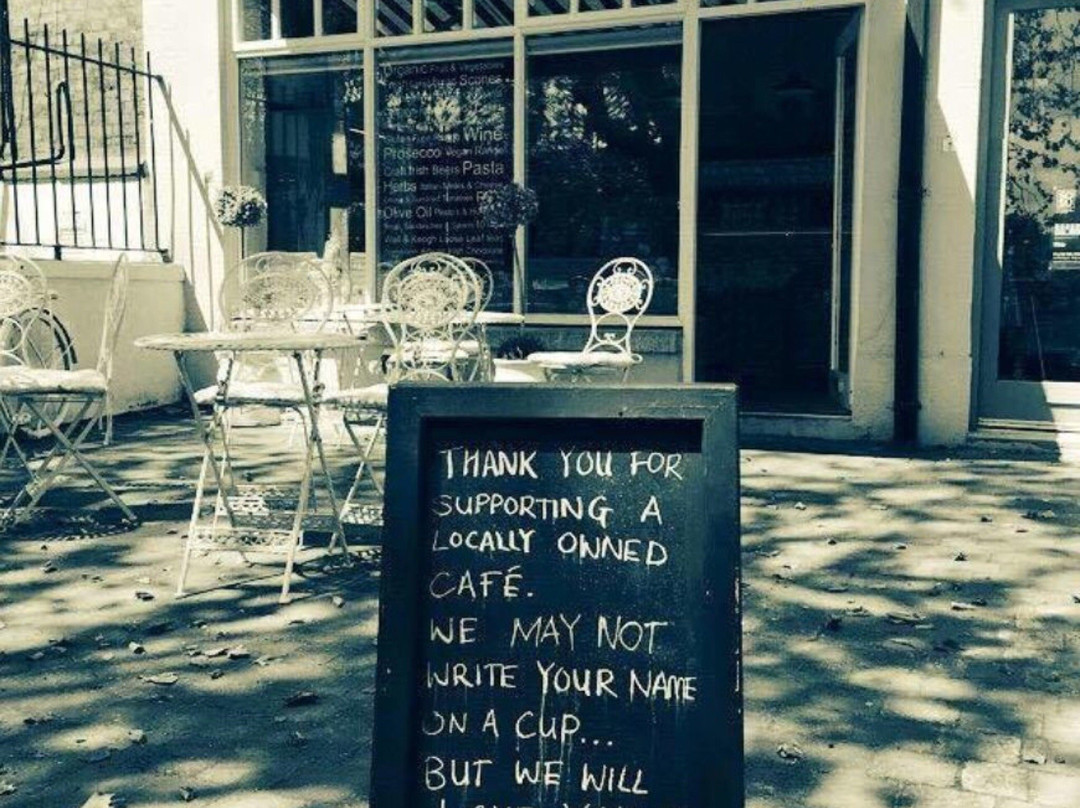 Organic Fruit & Vegetables
Scones
Wine
Prosecco Vegan Range
Craft Irish Beers Pasta
Herbs Italian Meats & Cheese
Olive Oil
Wall & Keogh Loose Leaf
THANK YOU FOR
SUPPORTING A
LOCALLY OWNED
CAFÉ.
WE MAY NOT
WRITE YOUR NAME
ON A CUP...
BUT WE WILL